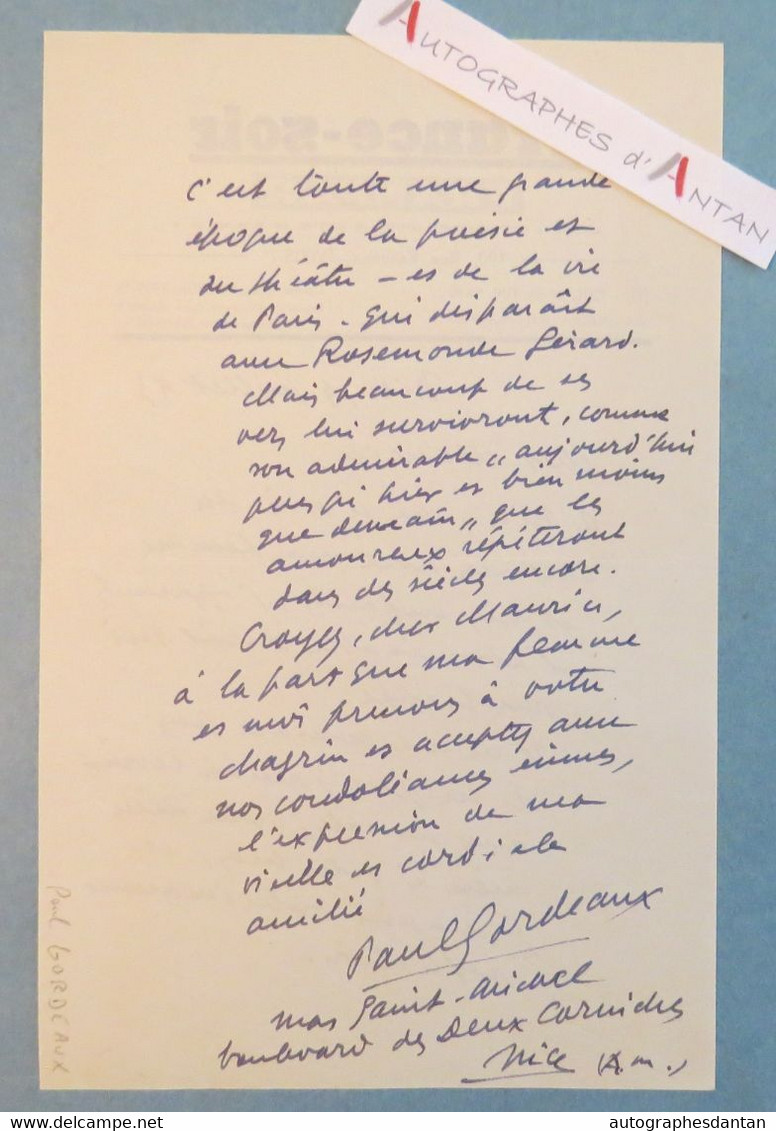 AUTOGRAPHES d'ANTAN
France-soir
C'est toute une grande
époque de la poésie et
du théâtre - et de la vie
de Paris - qui disparaît
avec Rosemonde Gérard.
Mais beaucoup de ses
vers lui survivront, comme
son admirable "aujourd'hui
plus qu'hier et bien moins
que demain" que les
amoureux répéteront
dans des siècles encore.
Croyez, cher Maurice,
à la part que ma femme
et moi prenons à votre
chagrin et acceptez avec
nos condoléances émues,
l'expression de ma
vieille et cordiale
amitié
Paul Gordeaux
mas Saint-Michel
boulevard des Deux Corniches
Nice (A.M.)
Paul GORDEAUX
delcampe.net
autographesdantan